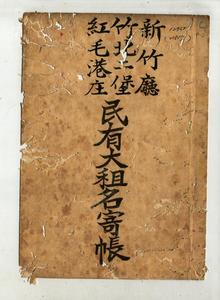 新竹廳
竹北二堡
紅毛港庄
民有大租名寄帳